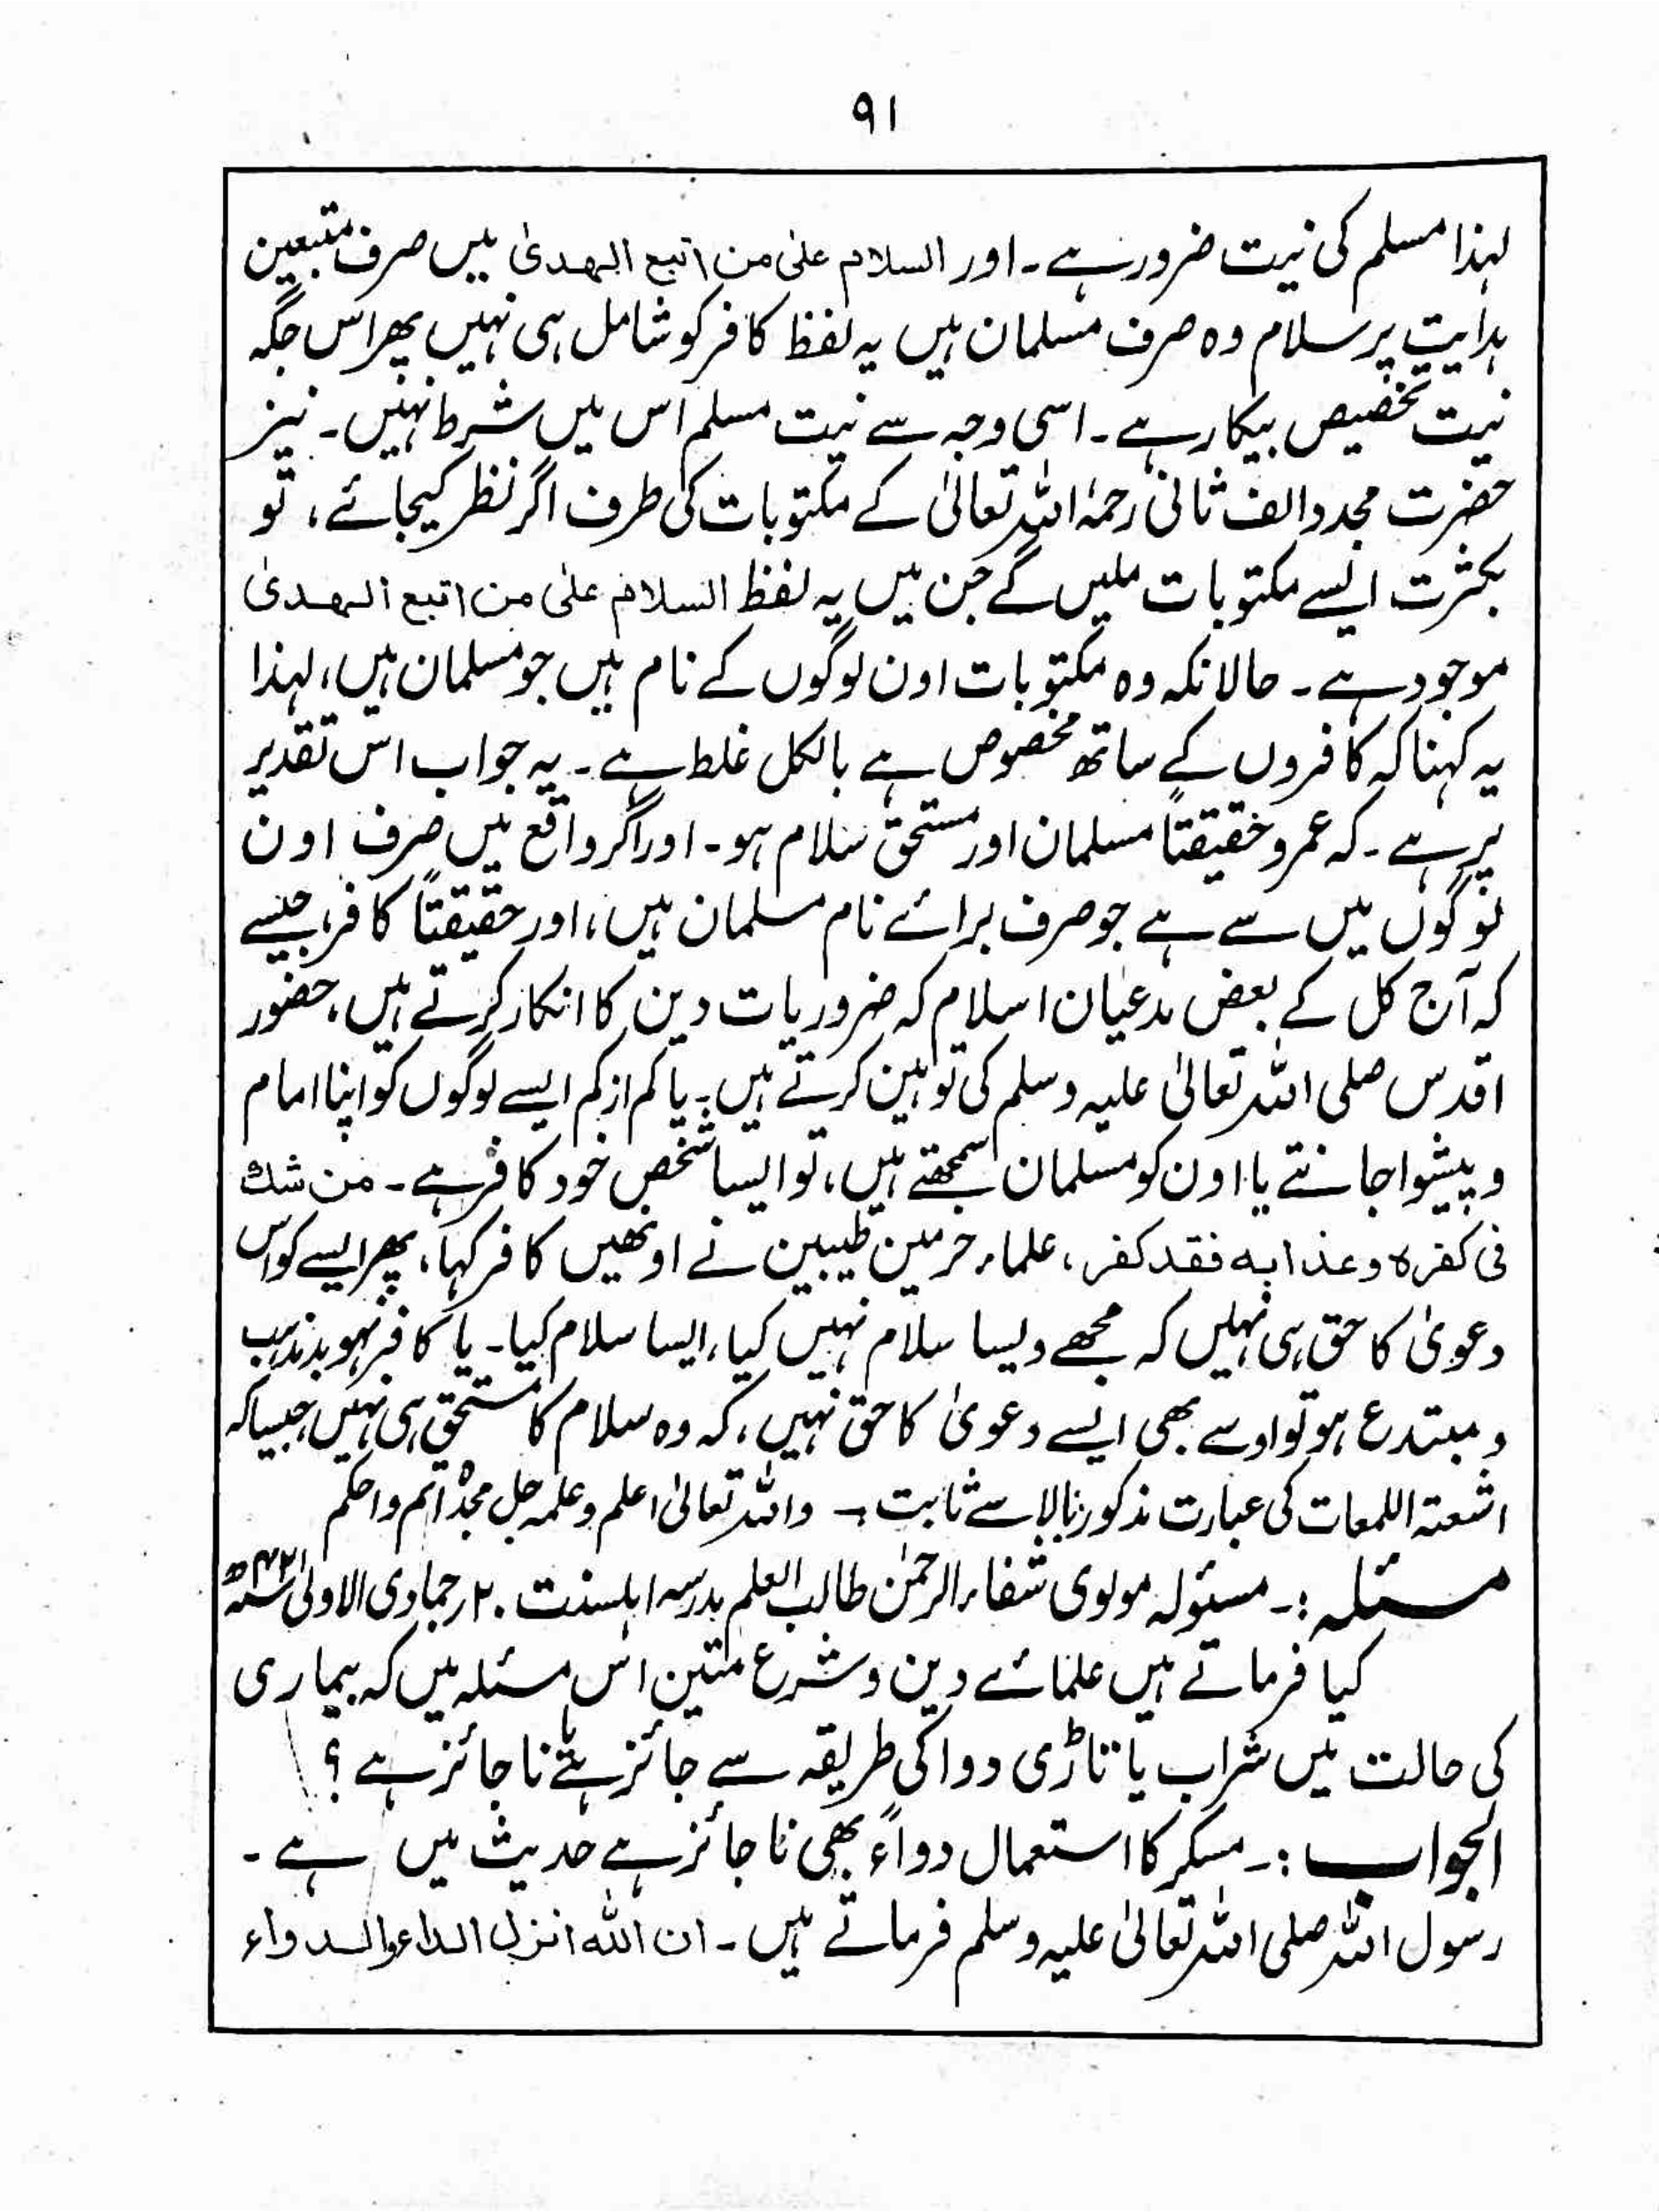 ۹۱
لہذا مسلم کی نیت ضرور ہے۔ اور السلام علیٰ من اتبع الہدیٰ میں صرف متبعین
ہدایت پر سلام وہ صرف مسلمان ہیں یہ لفظ کافر کو شامل ہی نہیں پھر اس جگہ
نیت تخصیص بیکار ہے۔ اسی وجہ سے نیت مسلم اس میں شرط نہیں۔ نیز
حضرت مجدد الف ثانی رحمۃ اللہ تعالیٰ کے مکتوبات کی طرف اگر نظر کیجائے، تو
بکثرت ایسے مکتوبات ملیں گے جن میں یہ لفظ السلام علیٰ من اتبع الہدیٰ
موجود ہے۔ حالانکہ وہ مکتوبات اون لوگوں کے نام ہیں جو مسلمان ہیں، لہذا
یہ کہنا کہ کافروں کے ساتھ مخصوص ہے بالکل غلط ہے۔ یہ جواب اس تقدیر
پر ہے۔ کہ عمرو حقیقتاً مسلمان اور مستحق سلام ہو۔ اور اگر واقع میں صرف اون
لوگوں میں سے ہے جو صرف برائے نام مسلمان ہیں، اور حقیقتاً کافر، جیسے
کہ آج کل کے بعض مدعیان اسلام کہ ضروریات دین کا انکار کرتے ہیں، حضور
اقدس صلی اللہ تعالیٰ علیہ وسلم کی توہین کرتے ہیں۔ یا کم از کم ایسے لوگوں کو اپنا امام
و پیشوا جانتے یا اون کو مسلمان سمجھتے ہیں، تو ایسا شخص خود کافر ہے۔ من شك
فی کفرہ و عذابہ فقد کفر، علماء حرمین طیبین نے اونھیں کافر کہا، پھر ایسے کو اس
دعویٰ کا حق ہی نہیں کہ مجھے ویسا سلام نہیں کیا، ایسا سلام کیا۔ یا کافر نہو بد مذہب
و مبتدع ہو تو اوسے بھی ایسے دعویٰ کا حق نہیں، کہ وہ سلام کا مستحق ہی نہیں جیسا کہ
اشعۃ اللمعات کی عبارت مذکورۂ بالا سے ثابت۔ واللہ تعالیٰ اعلم وعلمہ جل مجدہ اتم واحکم
مسئلہ :۔ مسئولہ مولوی شفاء الرحمٰن طالب العلم مدرسہ اہلسنت ۲۰ر جمادی الاولیٰ
کیا فرماتے ہیں علمائے دین و شرع متین اس مسئلہ میں کہ بیماری
کی حالت میں شراب یا تاڑی دوا کی طریقہ سے جائز ہے یا ناجائز ہے ؟
الجواب :۔ مسکر کا استعمال دواءً بھی ناجائز ہے حدیث میں ہے۔
رسول اللہ صلی اللہ تعالیٰ علیہ وسلم فرماتے ہیں۔ ان اللہ انزل الداء والدواء